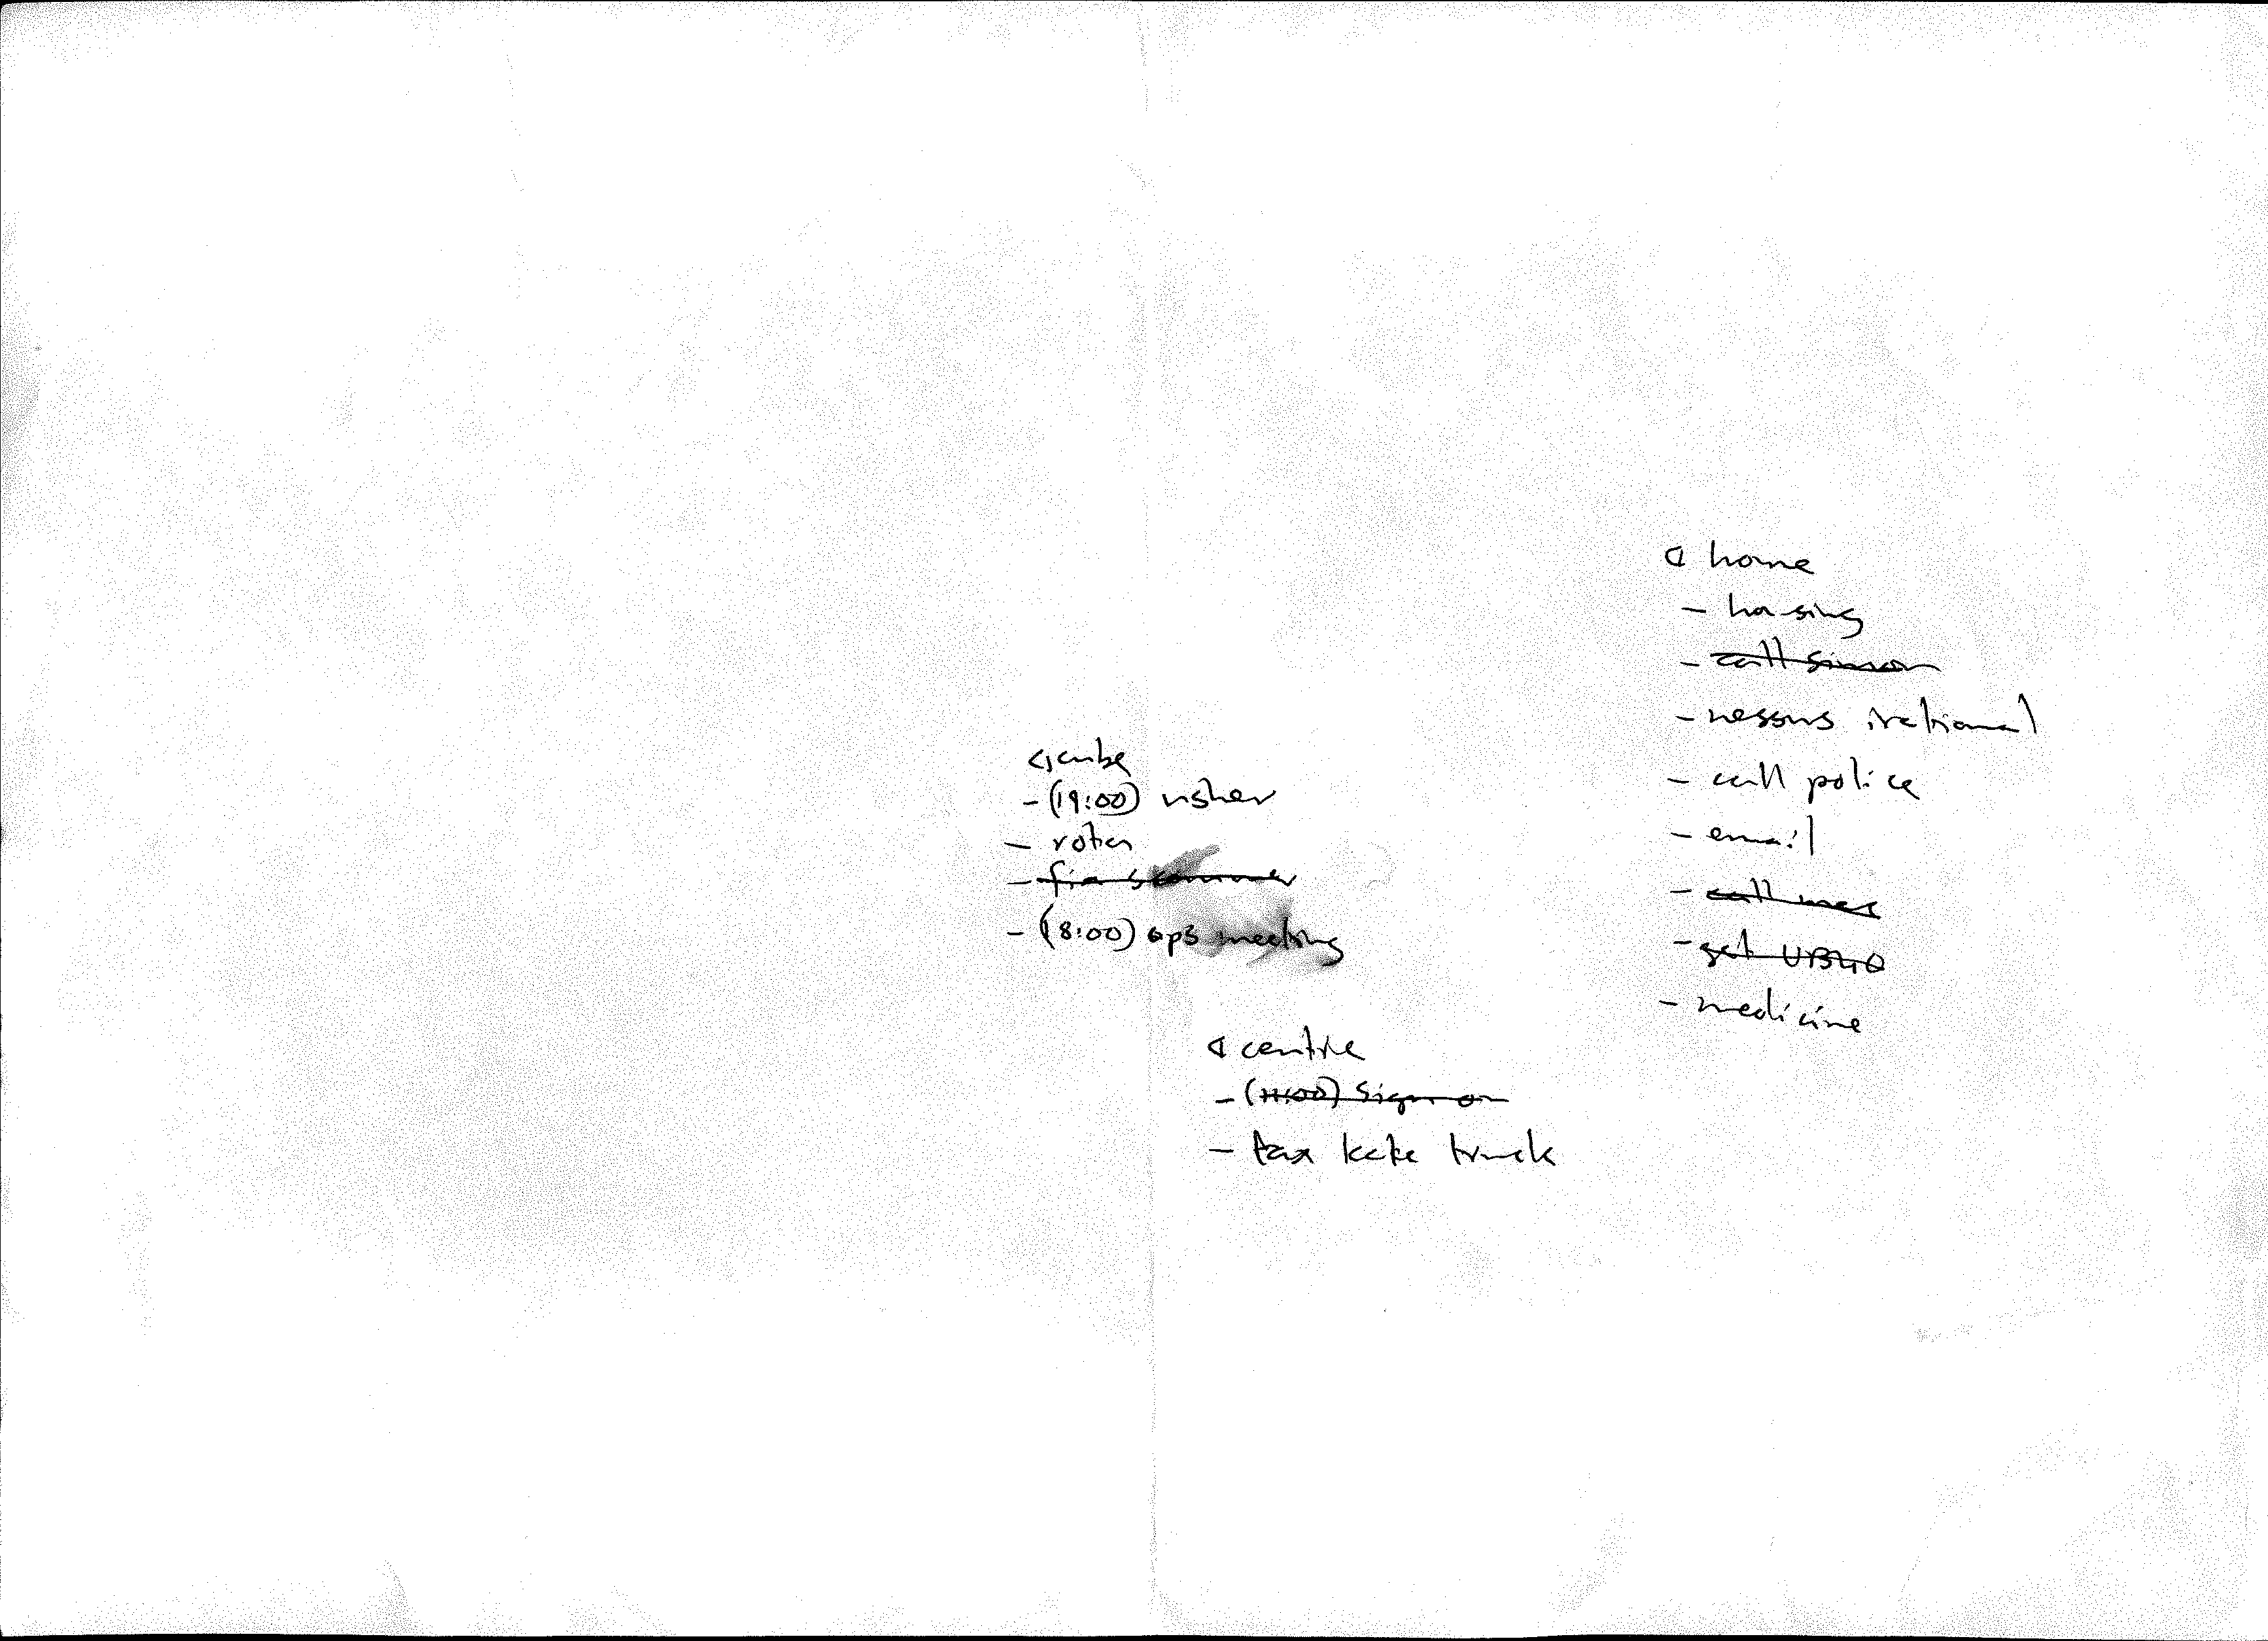 @ cube
- (19:00) usher
- rota
- fix scanner
- (18:00) ops meeting
@ centre
- (11:00) Sign on
- tax kate truck
@ home
- housing
- call simon
- nessus irational
- call police
- email
- call
- get UB40
- medicine